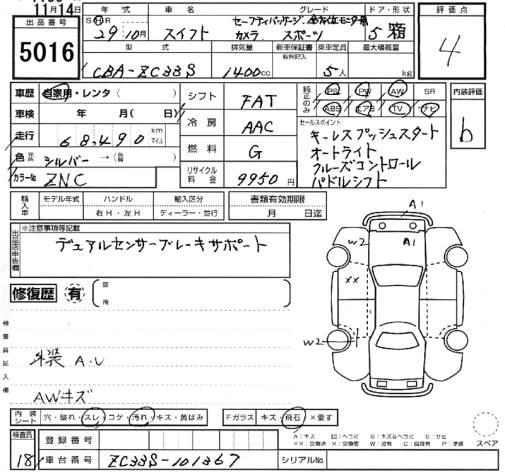 11月14日
出品番号
5016
年式 車名 グレード ドア・形状 評価点
S・H・R 29年10月 スイフト セーフティパッケージ 全方位モニター用カメラ スポーツ 5 箱 4
型式 排気量 新車保証書 乗車定員 最大積載量
有無記入
CBA-ZC33S 1400cc 5人 kg
車歴 自家用・レンタ( )
車検 年 月( 日)
走行 68,490 km マイル
色 シルバー → (色替)
カラーNo. ZNC
シフト FAT
冷房 AAC
燃料 G
リサイクル料金 9950円
純正のみ PS PW AW SR
ABS エアB TV ナビ
内装評価
b
セールスポイント
キーレスプッシュスタート
オートライト
クルーズコントロール
パドルシフト
輸入車 モデル年式 ハンドル 輸入区分 書類有効期限
右H・左H ディーラー・並行 月 日迄
出品店申告欄
※注意事項等記載
デュアルセンサーブレーキサポート
修復歴 有 箇所
検査員記入欄
外装 A・U
AWキズ
A1
W2 A1
××
W2
内装シート 穴・破れ・スレ・コゲ・汚れ・キズ・黄ばみ Fガラス キズ・飛石・×要す
スペア
検査員
18
登録番号
車台番号 ZC33S-101367 シリアルNo.